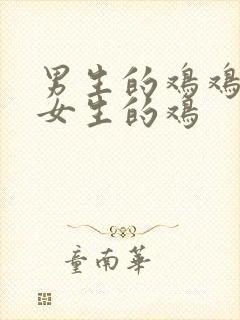 男生的鸡鸡
女生的鸡
童南華